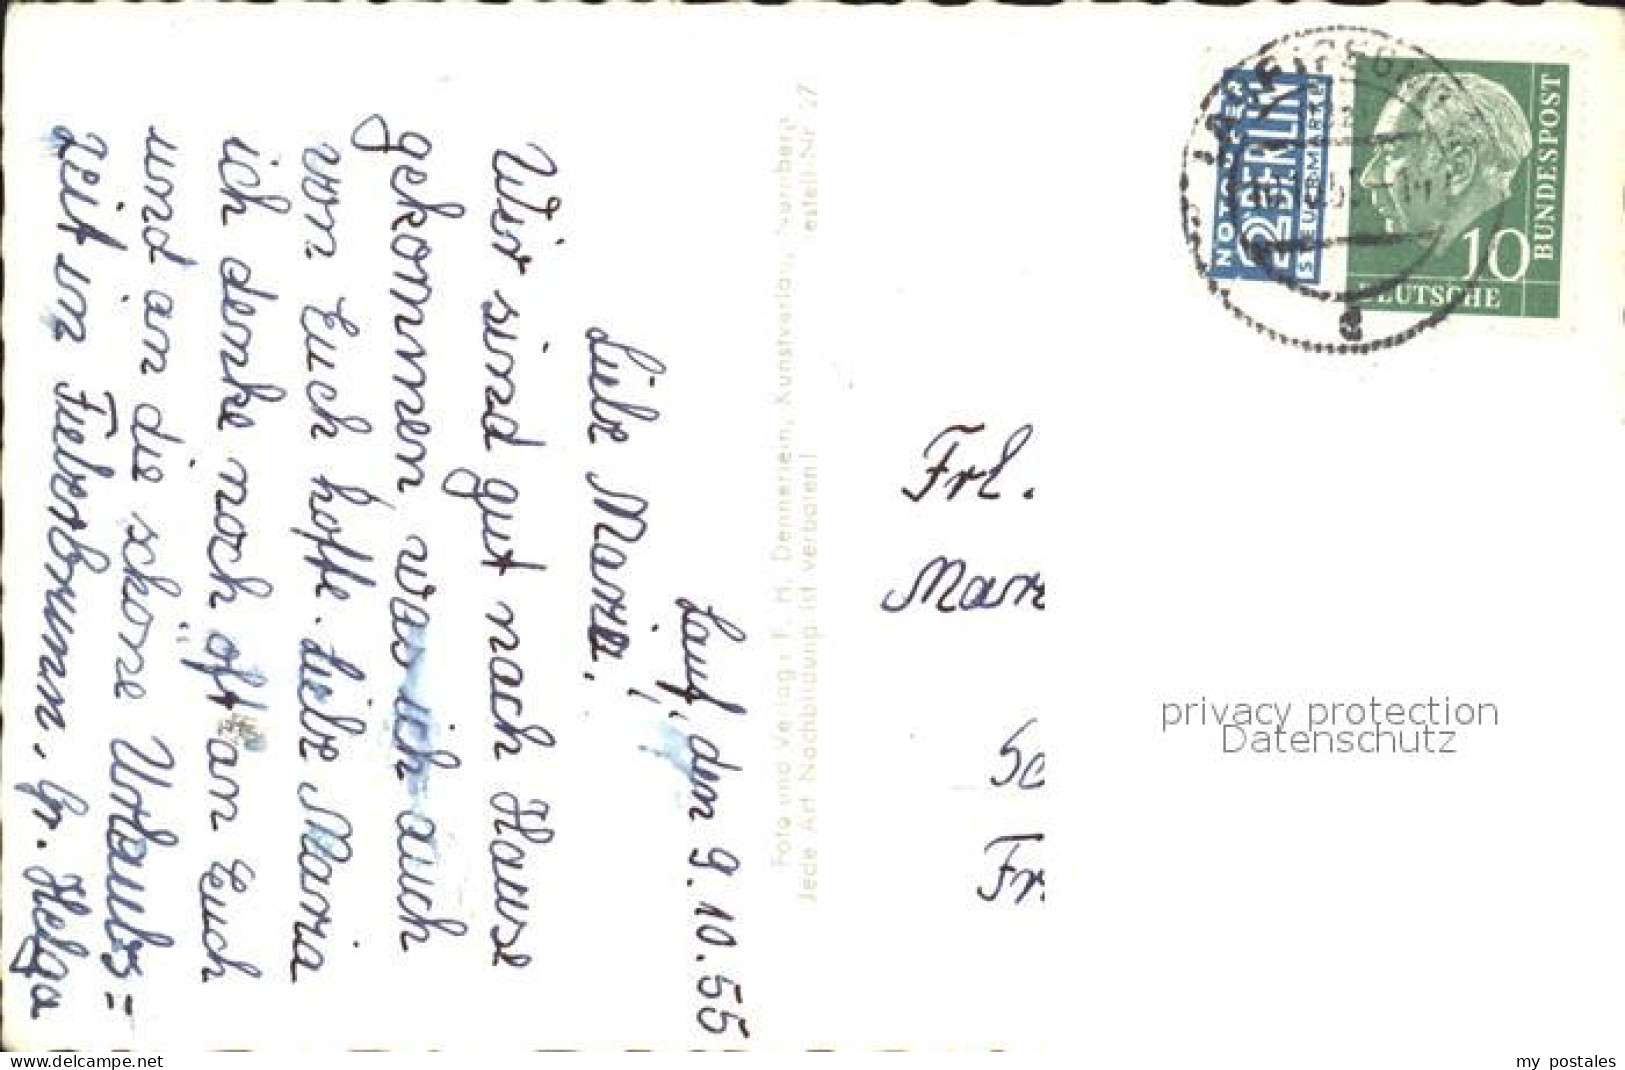 Lauf, den 9.10.55
Liebe Maria!
Wir sind gut nach Hause
gekommen, was ich auch
von Euch hoffe. Liebe Maria
ich denke noch oft an Euch
und an die schöne Urlaubs=
zeit in Fieberbrunn, Gr. Helga
Foto und Verlag: F. M. Dennerlein, Kunstverlag, Nürnberg
Jede Art Nachbildung ist verboten!
NOTOPFER
2 BERLIN
STEUERMARKE
DEUTSCHE
BUNDESPOST
10
a
Frl.
Mar
Sc
Fr.
privacy protection
Datenschutz
my postales
www.delcampe.net/moetzel